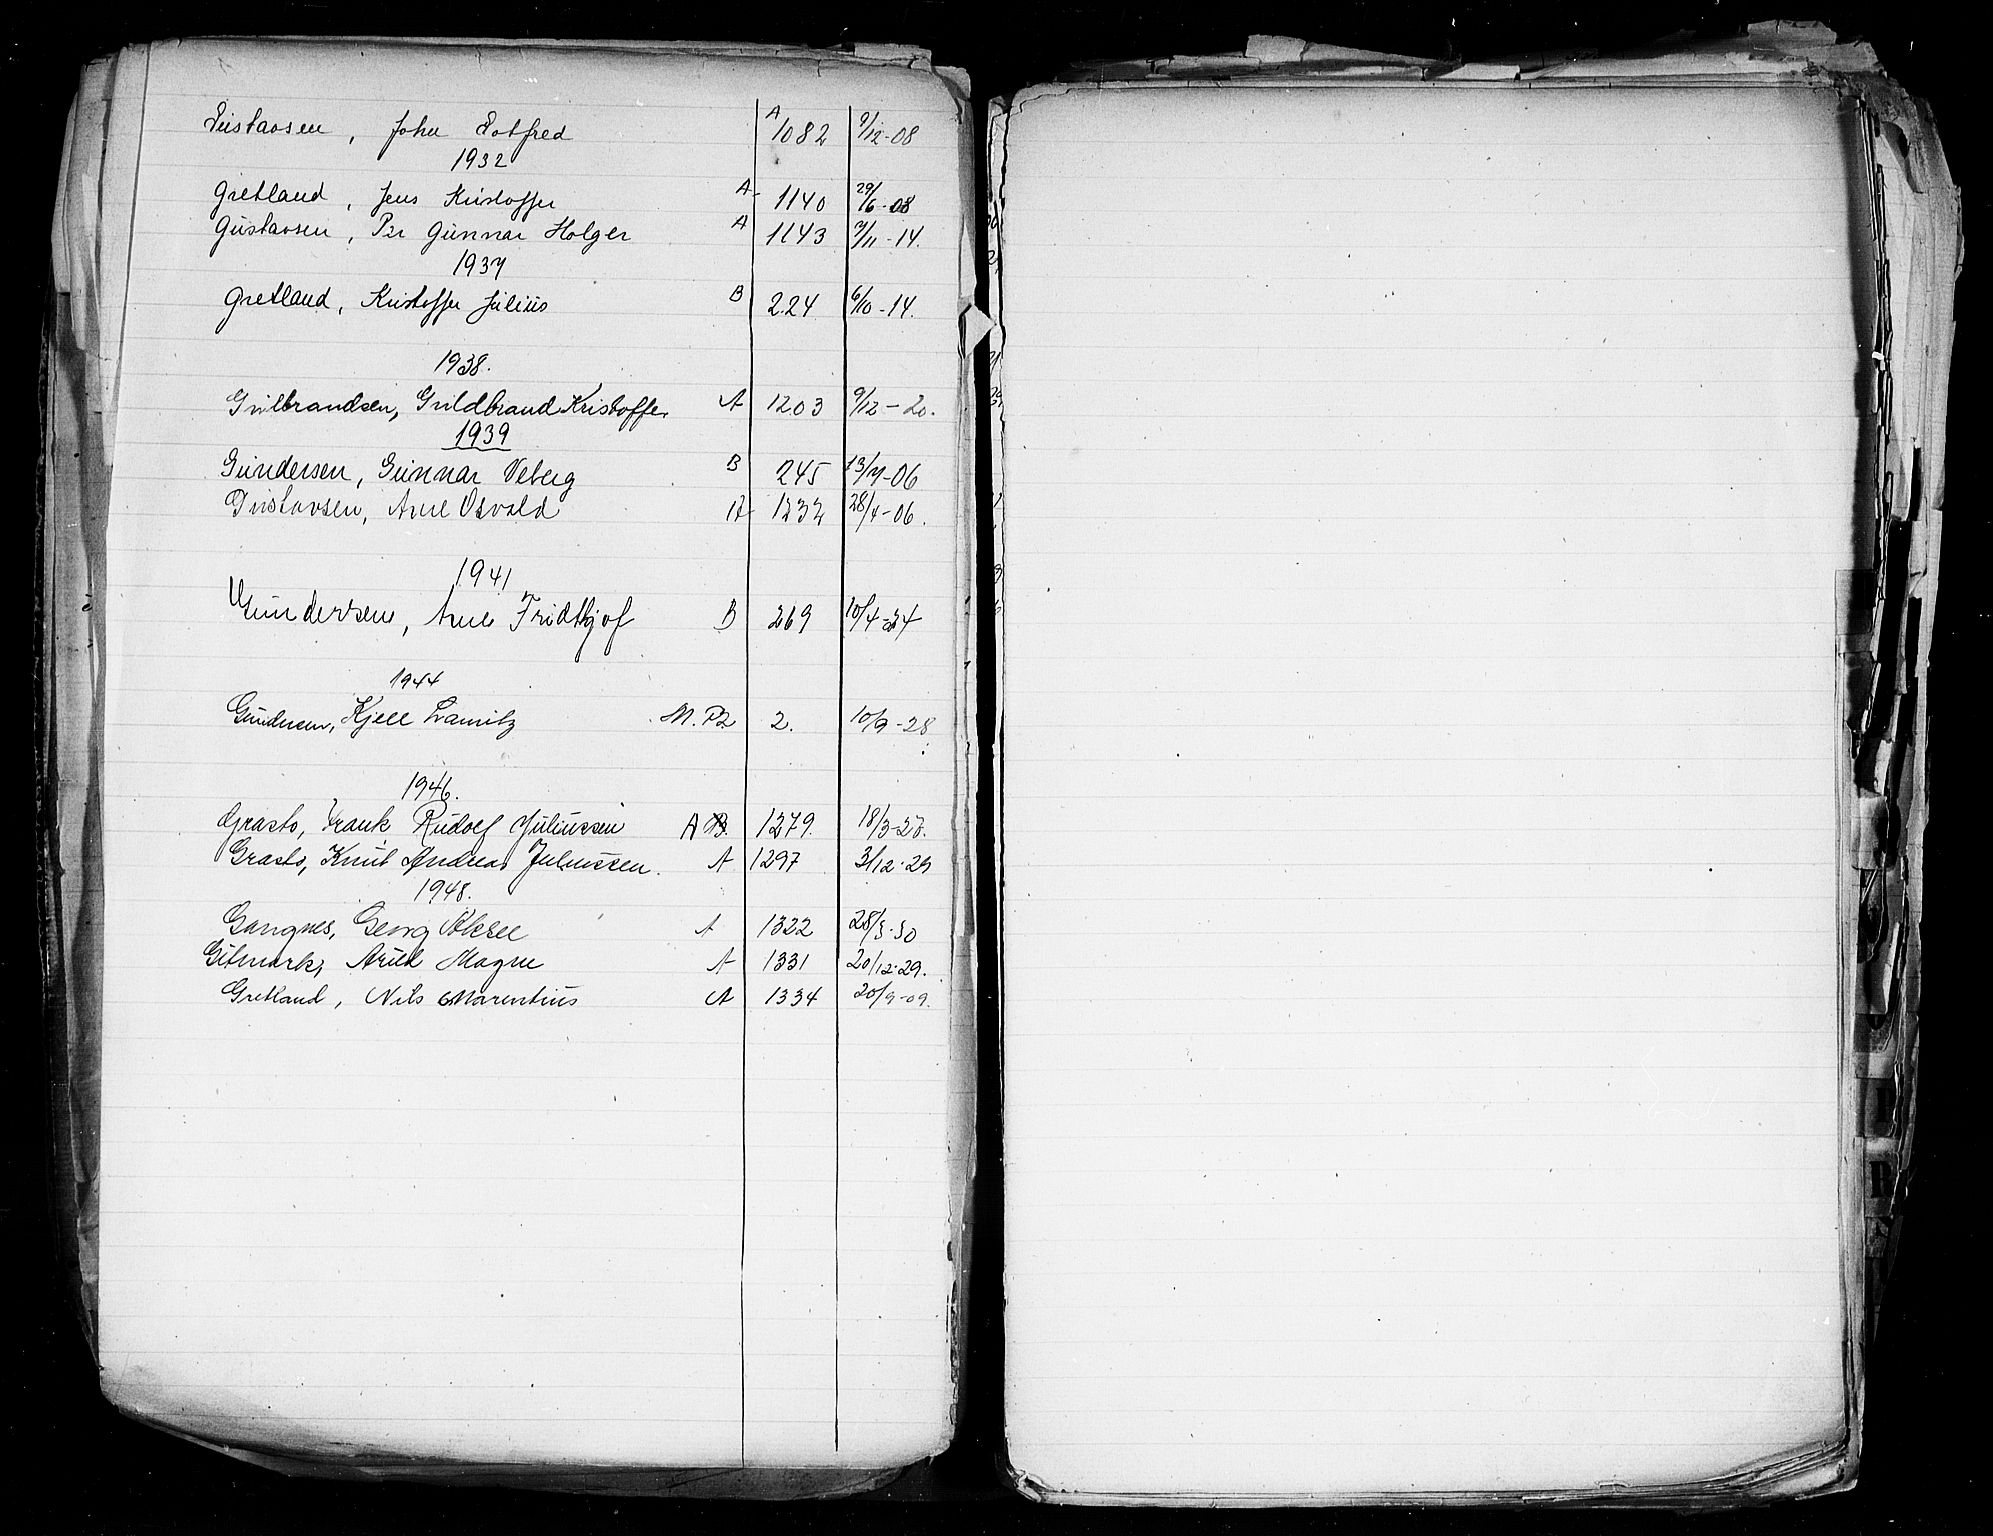 Gustavsen, John Gotfred A 1082 9/12-08
1932
Gretland, Jens Kristoffer A 1140 29/6-08
Gustavsen, Per Gunnar Holger A 1143 9/11-14.
1937
Gretland, Kristoffer Julius B 224 6/10-14.
1938.
Gulbrandsen, Guldbrand Kristoffer A 1203 9/12-20.
1939
Gundersen, Gunnar Veberg B 245 13/7-06
Gustavsen, Arne Osvald A 1232 28/4-06.
1941
Gundersen, Arne Fridthjof B 269 10/4-24
1944
Gundersen, Kjell M. B2. 2. 10/9-28
1946.
Grasto, Frank Rudolf Juliussen A B. 1279. 18/3-27.
Grasto, Knut Andreas Juliussen. A 1297 3/12-29
1948.
Gangnes, Georg Aksel A 1322 28/3-30
Gitmark, Arild Magne A 1331 20/12-29.
Gretland, Nils Marentius A 1334 20/9-09.